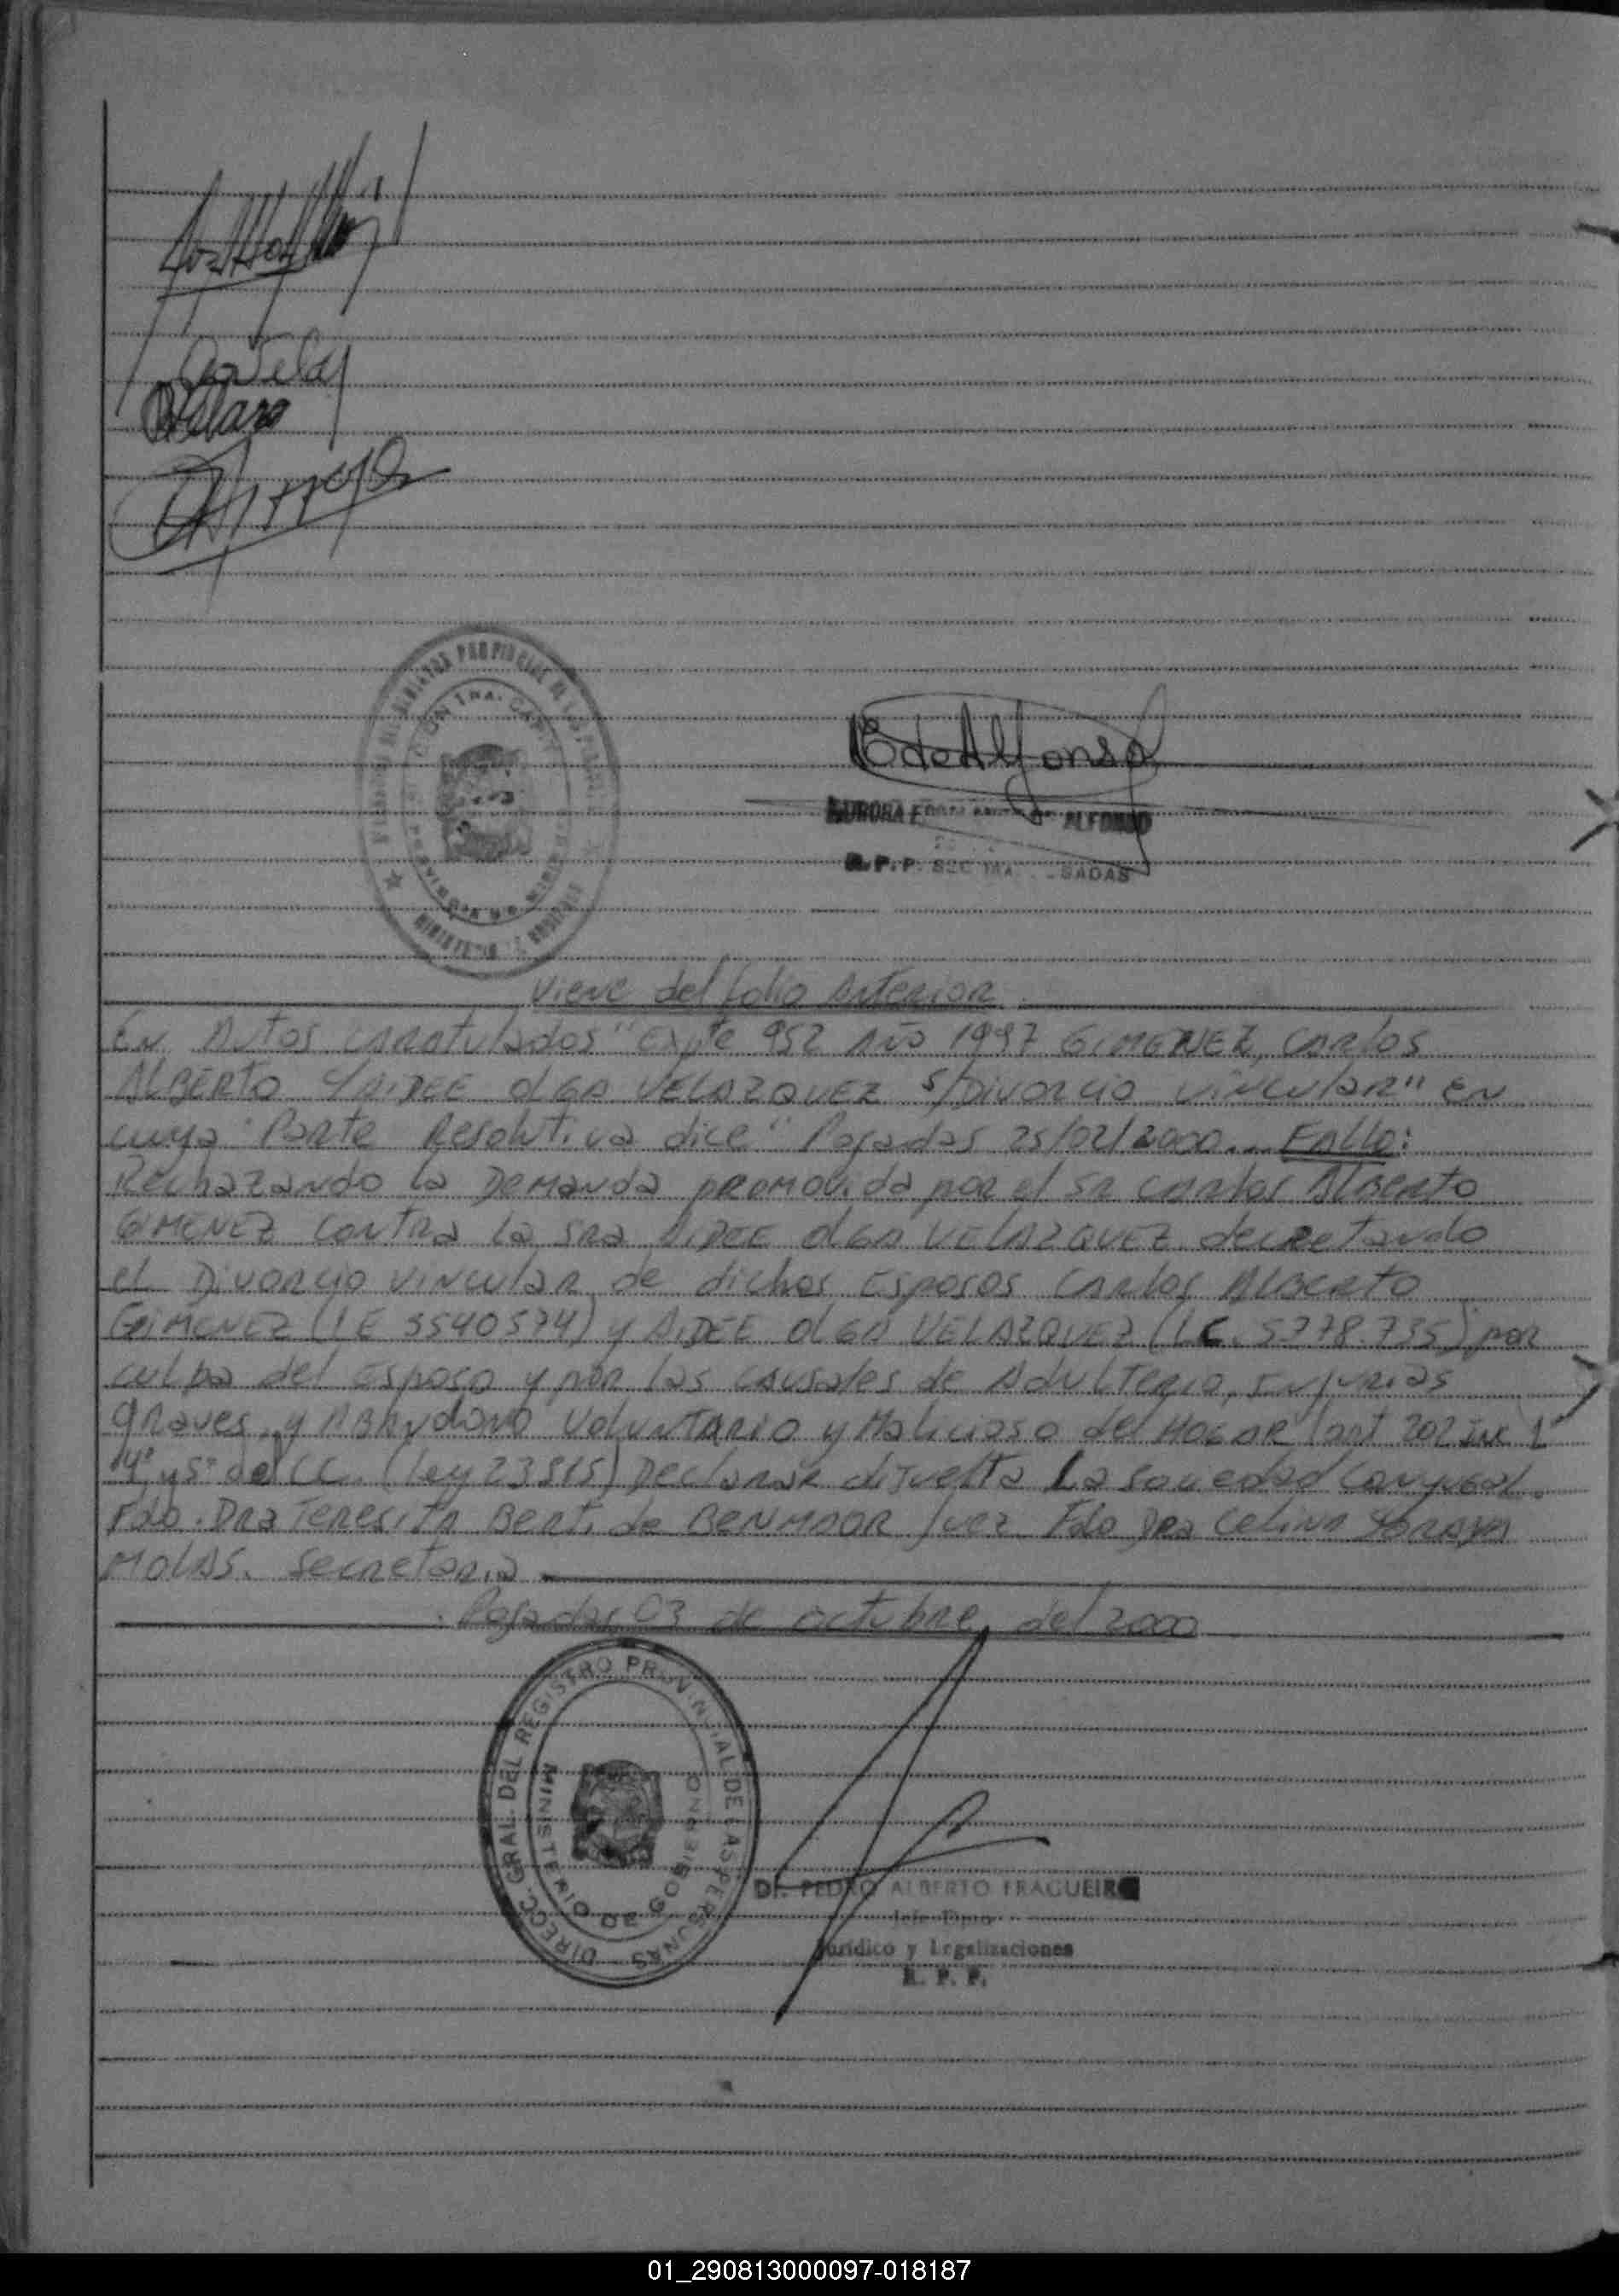 EdeAlfonso
AURORA E ALFONSO
R.P.P. SEC 1RA. POSADAS
Viene del folio Anterior
En Autos caratulados "Expte 952 Año 1997 GIMENEZ, CARLOS
ALBERTO Y AIDEE OLGA VELAZQUEZ S/Divorcio vincular" en
cuya Parte Resolutiva dice" Posadas 25/02/2000... Fallo:
Rechazando la Demanda promovida por el SR Carlos Alberto
GIMENEZ contra la SRA AIDEE OLGA VELAZQUEZ decretando
el Divorcio vincular de dichos Esposos Carlos Alberto
GIMENEZ (LE 5540574) y AIDEE OLGA VELAZQUEZ (LC. 5778.735) por
culpa del esposo y por las causales de Adulterio, Injurias
graves, y Abandono Voluntario y Malicioso del HOGAR (art 202 inc 1°
4° y 5° del CC. (Ley 23515) Declarar disuelta La Sociedad Conyugal.
Fdo. Dra Teresita Berti de BENMAOR Juez Fdo Dra Celina SORAYA
MOLAS. Secretaria
Posadas, 03 de octubre, del 2000
DIRECC. GRAL. DEL REGISTRO PROVINCIAL DE LAS PERSONAS
MINISTERIO DE GOBIERNO
Dr. PEDRO ALBERTO FRAGUEIRO
Jefe Dpto
Jurídico y Legalizaciones
R. P. P.
01_290813000097-018187